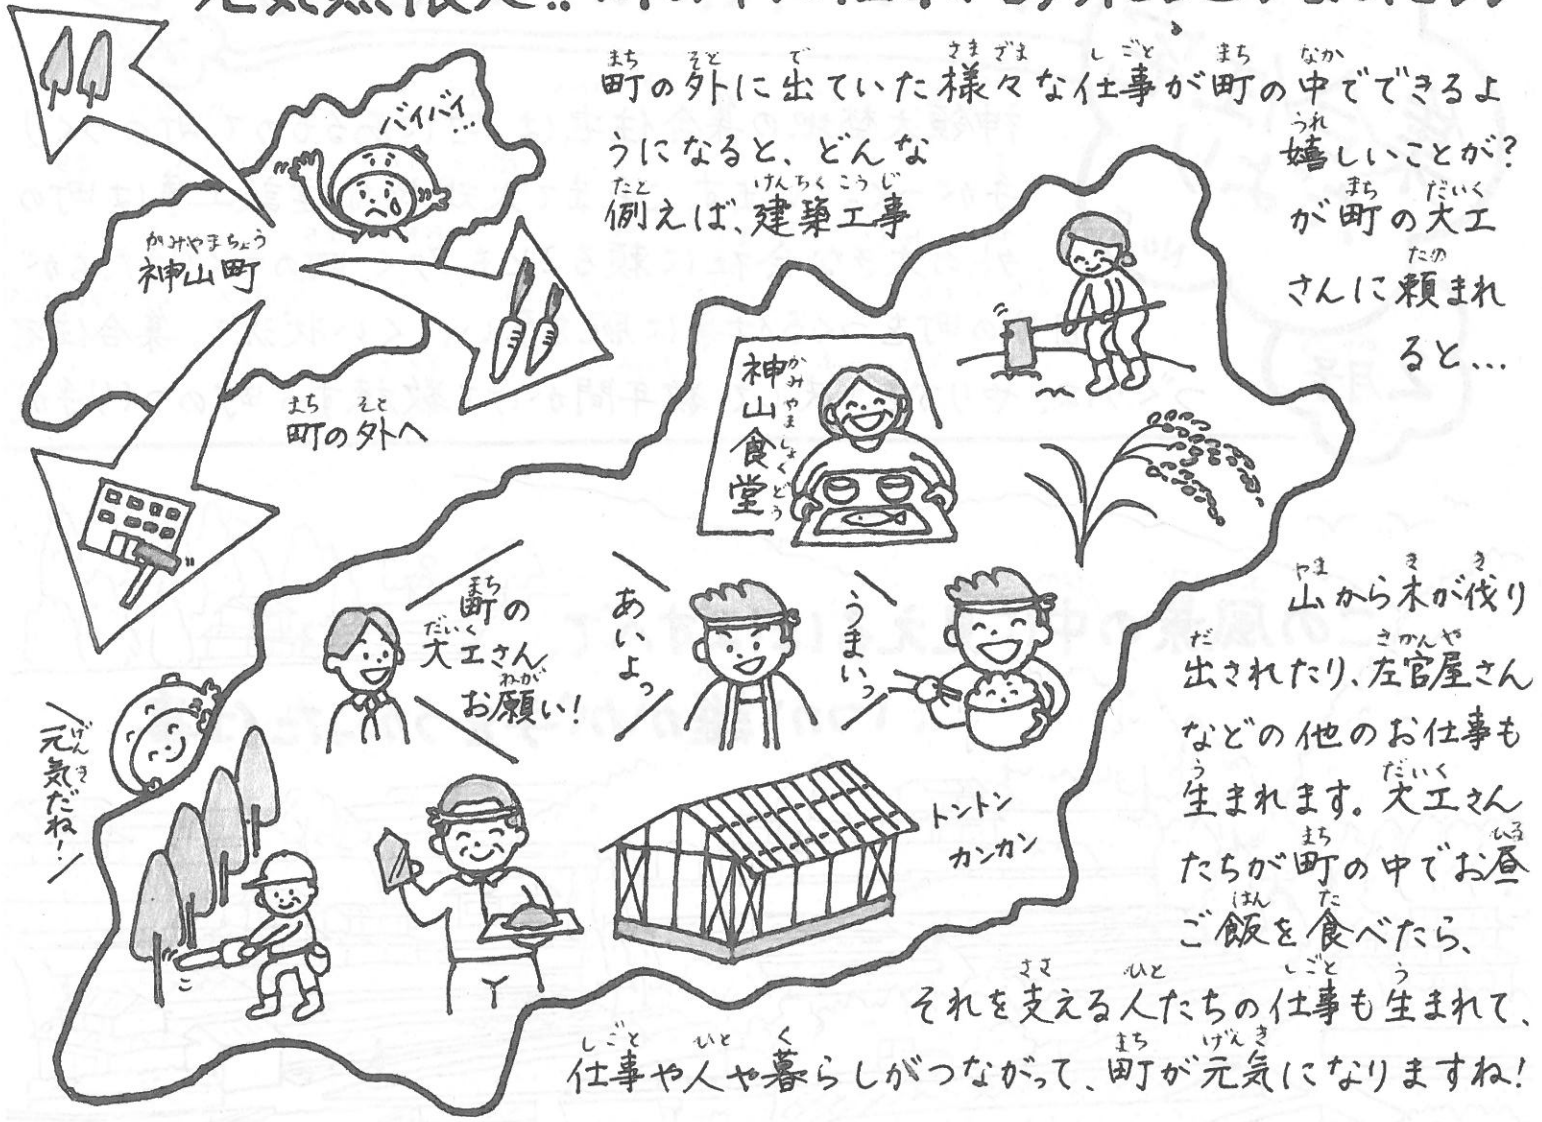 町の外に出ていた様々な仕事が町の中でできるよ
うになると、どんな嬉しいことが?
例えば、建築工事が町の大工
さんに頼まれ
ると…
バイバイ…
神山町
町の外へ
神山食堂
町の
大工さん、
お願い!
あいよっ
うまいっ
元気だね!
トントン
カンカン
山から木が伐り
出されたり、左官屋さん
などの他のお仕事も
生まれます。大工さん
たちが町の中でお昼
ご飯を食べたら、
それを支える人たちの仕事も生まれて、
仕事や人や暮らしがつながって、町が元気になりますね!